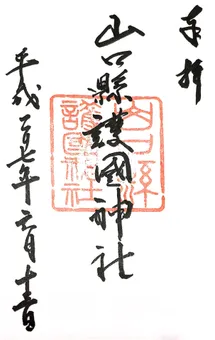 奉拝
山口縣護國神社
平成二十七年 月 日
山口縣
護國神社